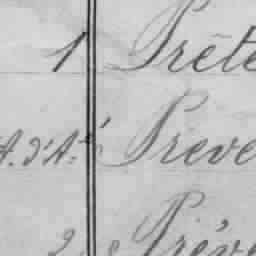 1 Prête
A. d'A.é Preve
2 Préve